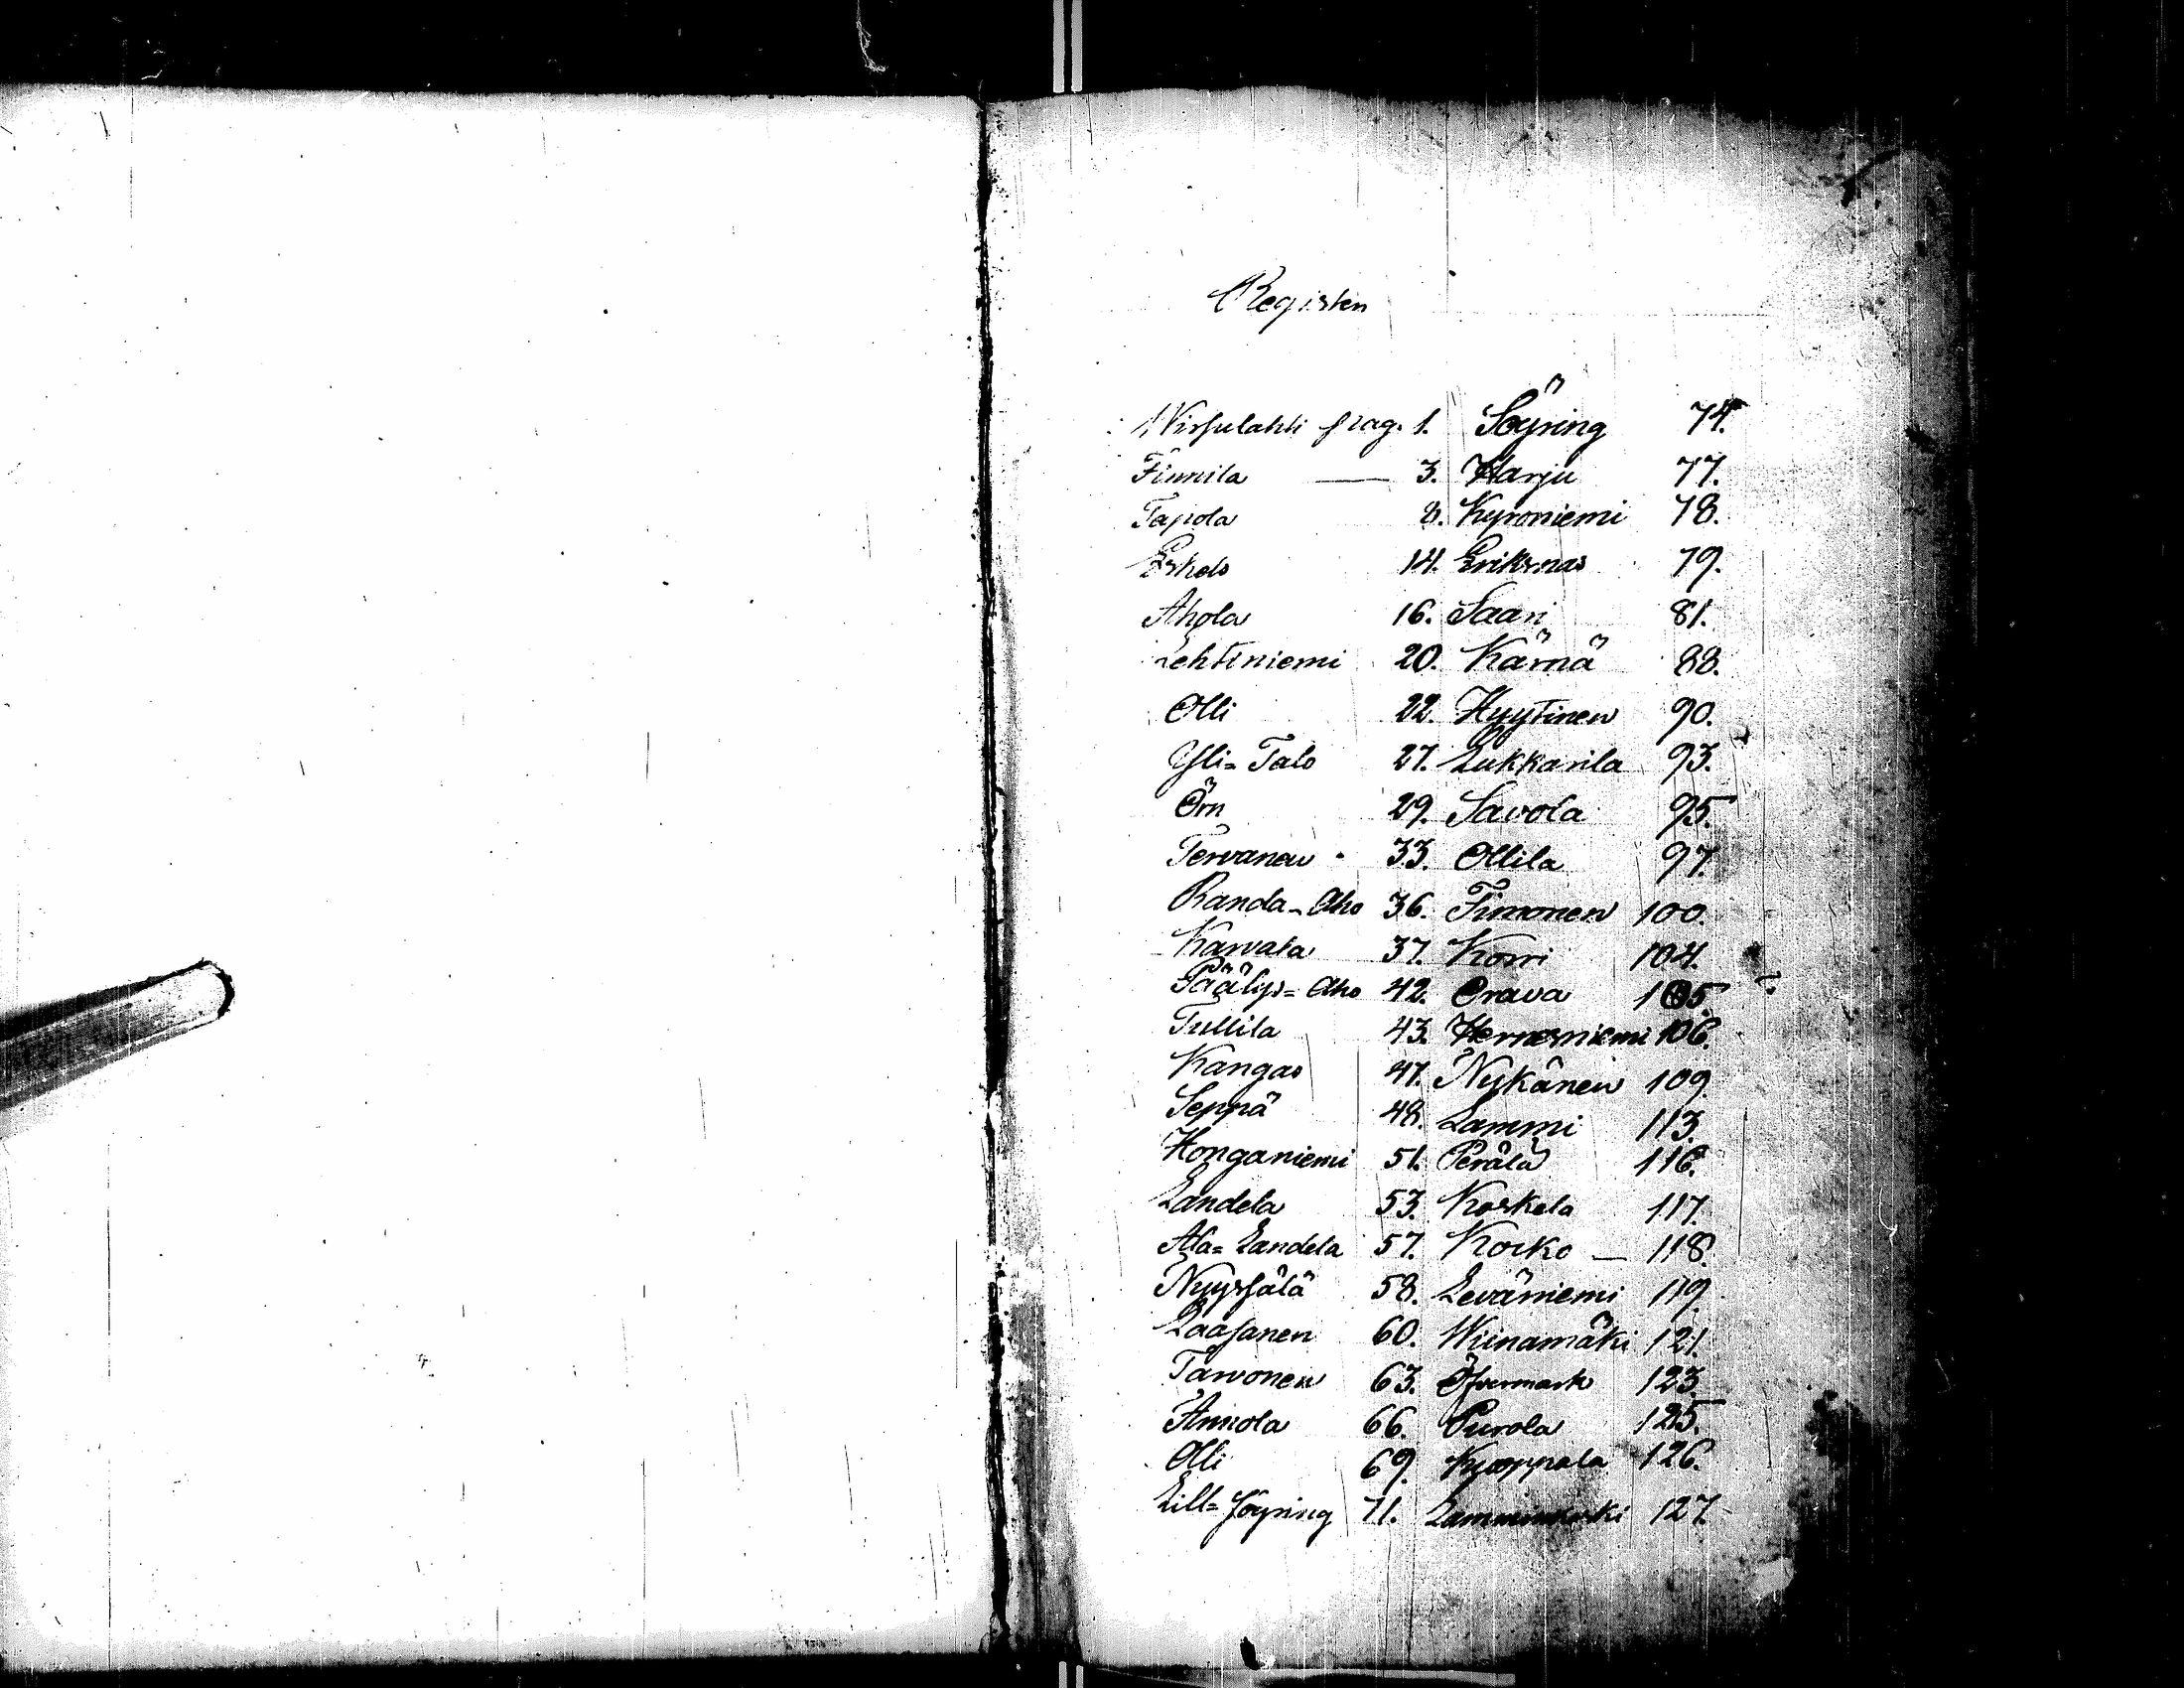 Register
Wirsulahti pag. 1. Söyring 74.
Finnila — 3. Harju 77.
Tapola 8. Kyroniemi 78.
Eskola 14. Eriksnäs 79.
Ahola 16. Saari 81.
Lehtiniemi 20. Kärnä 88.
Olli 22. Hyytinen 90.
Yli=Talo 27. Lukkarila 93.
Örn 29. Savola 95.
Tervanen 33. Ollila 97.
Randa-Aho 36. Timonen 100.
Karvala 37. Korri 104.
Päälys=Aho 42. Orava 105
Tullila 43. Hernesniemi 106.
Kangas 47. Nykänen 109.
Seppä 48. Lammi 113.
Honganiemi 51. Perälä 116.
Landela 53. Koskela 117.
Ala=Landela 57. Kocko — 118.
Nyyssälä 58. Leväniemi 119.
Laasanen 60. Wiinamäki 121.
Tarvonen 63. Öfvermark 123.
Annola 66. Purola 125.
Olli 69. 126.
Lill=Söyring 71. Lamminkoski 127.